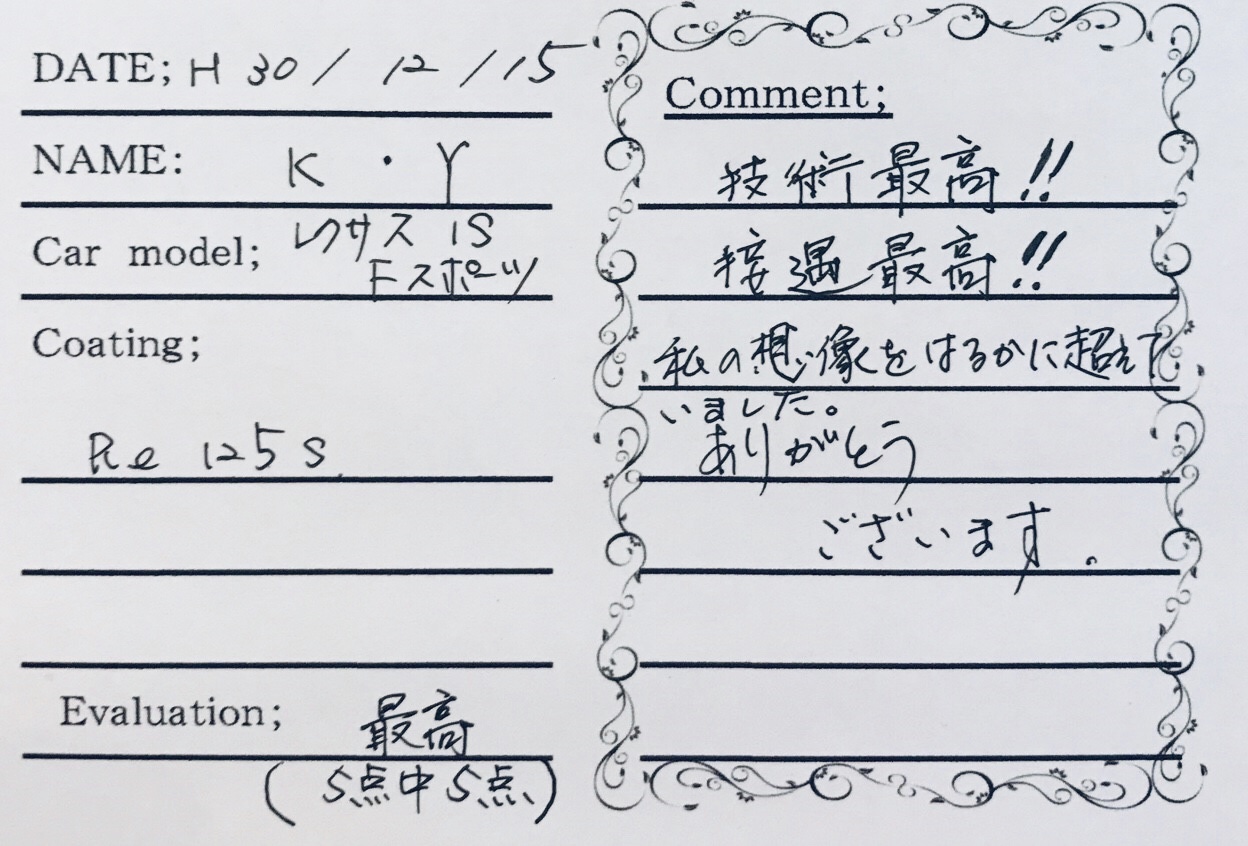 DATE; H 30 / 12 / 15
NAME: K・Y
Car model; レクサス IS
Fスポーツ
Coating;
Re 125 S
Evaluation; 最高
(5点中5点)
Comment;
技術最高!!
接遇最高!!
私の想い像をはるかに超えて
いました。
ありがとう
ございます。